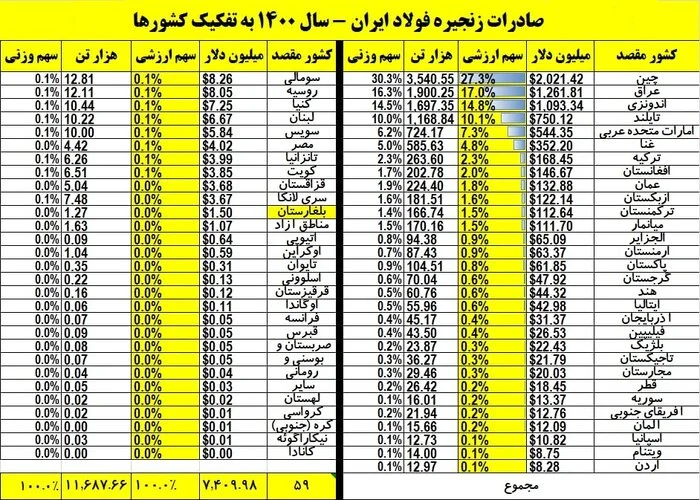 صادرات زنجیره فولاد ایران – سال ۱۴۰۰ به تفکیک کشورها
کشور مقصد میلیون دلار سهم ارزشی هزار تن سهم وزنی
چین $2,021.42 27.3% 3,540.55 30.3%
عراق $1,261.81 17.0% 1,900.25 16.3%
اندونزی $1,093.34 14.8% 1,697.35 14.5%
تایلند $750.12 10.1% 1,168.84 10.0%
امارات متحده عربی $544.35 7.3% 724.17 6.2%
غنا $352.20 4.8% 585.63 5.0%
ترکیه $168.45 2.3% 263.60 2.3%
افغانستان $146.67 2.0% 202.78 1.7%
عمان $132.88 1.8% 224.40 1.9%
ازبکستان $122.14 1.6% 181.51 1.6%
ترکمنستان $112.64 1.5% 166.74 1.4%
میانمار $111.70 1.5% 170.16 1.5%
الجزایر $65.09 0.9% 94.38 0.8%
ارمنستان $63.37 0.9% 87.43 0.7%
پاکستان $61.85 0.8% 104.51 0.9%
گرجستان $47.92 0.6% 70.04 0.6%
هند $44.32 0.6% 60.76 0.5%
ایتالیا $42.98 0.6% 55.96 0.5%
آذربایجان $31.37 0.4% 45.17 0.4%
فیلیپین $26.53 0.4% 43.50 0.4%
بلژیک $22.43 0.3% 23.87 0.2%
تاجیکستان $21.79 0.3% 36.27 0.3%
مجارستان $20.03 0.3% 29.46 0.3%
قطر $18.45 0.2% 26.42 0.2%
سوریه $13.37 0.2% 16.01 0.1%
آفریقای جنوبی $12.76 0.2% 21.94 0.2%
آلمان $12.09 0.2% 15.66 0.1%
اسپانیا $10.82 0.1% 12.73 0.1%
ویتنام $8.75 0.1% 14.00 0.1%
اردن $8.28 0.1% 12.97 0.1%
مجموع
کشور مقصد میلیون دلار سهم ارزشی هزار تن سهم وزنی
سومالی $8.26 0.1% 12.81 0.1%
روسیه $8.05 0.1% 12.11 0.1%
کنیا $7.25 0.1% 10.44 0.1%
لبنان $6.67 0.1% 10.22 0.1%
سویس $5.84 0.1% 10.00 0.1%
مصر $4.02 0.1% 4.42 0.0%
تانزانیا $3.99 0.1% 6.26 0.1%
کویت $3.85 0.1% 6.51 0.1%
قزاقستان $3.68 0.0% 5.04 0.0%
سری لانکا $3.67 0.0% 7.48 0.1%
بلغارستان $1.50 0.0% 1.27 0.0%
مناطق آزاد $1.07 0.0% 1.63 0.0%
اتیوپی $0.64 0.0% 0.09 0.0%
اوکراین $0.59 0.0% 1.04 0.0%
تایوان $0.31 0.0% 0.35 0.0%
اسلوونی $0.13 0.0% 0.22 0.0%
قرقیزستان $0.12 0.0% 0.16 0.0%
اوگاندا $0.11 0.0% 0.06 0.0%
فرانسه $0.05 0.0% 0.07 0.0%
قبرس $0.05 0.0% 0.09 0.0%
صربستان و $0.05 0.0% 0.08 0.0%
بوسنی و $0.04 0.0% 0.06 0.0%
رومانی $0.04 0.0% 0.04 0.0%
سایر $0.03 0.0% 0.04 0.0%
لهستان $0.02 0.0% 0.02 0.0%
کرواسی $0.01 0.0% 0.02 0.0%
کره (جنوبی) $0.01 0.0% 0.00 0.0%
نیکاراگوئه $0.01 0.0% 0.03 0.0%
کانادا $0.00 0.0% 0.00 0.0%
۵۹ ۷,۴۰۹.۹۸ ۱۰۰.۰٪ ۱۱,۶۸۷.۶۶ ۱۰۰.۰٪